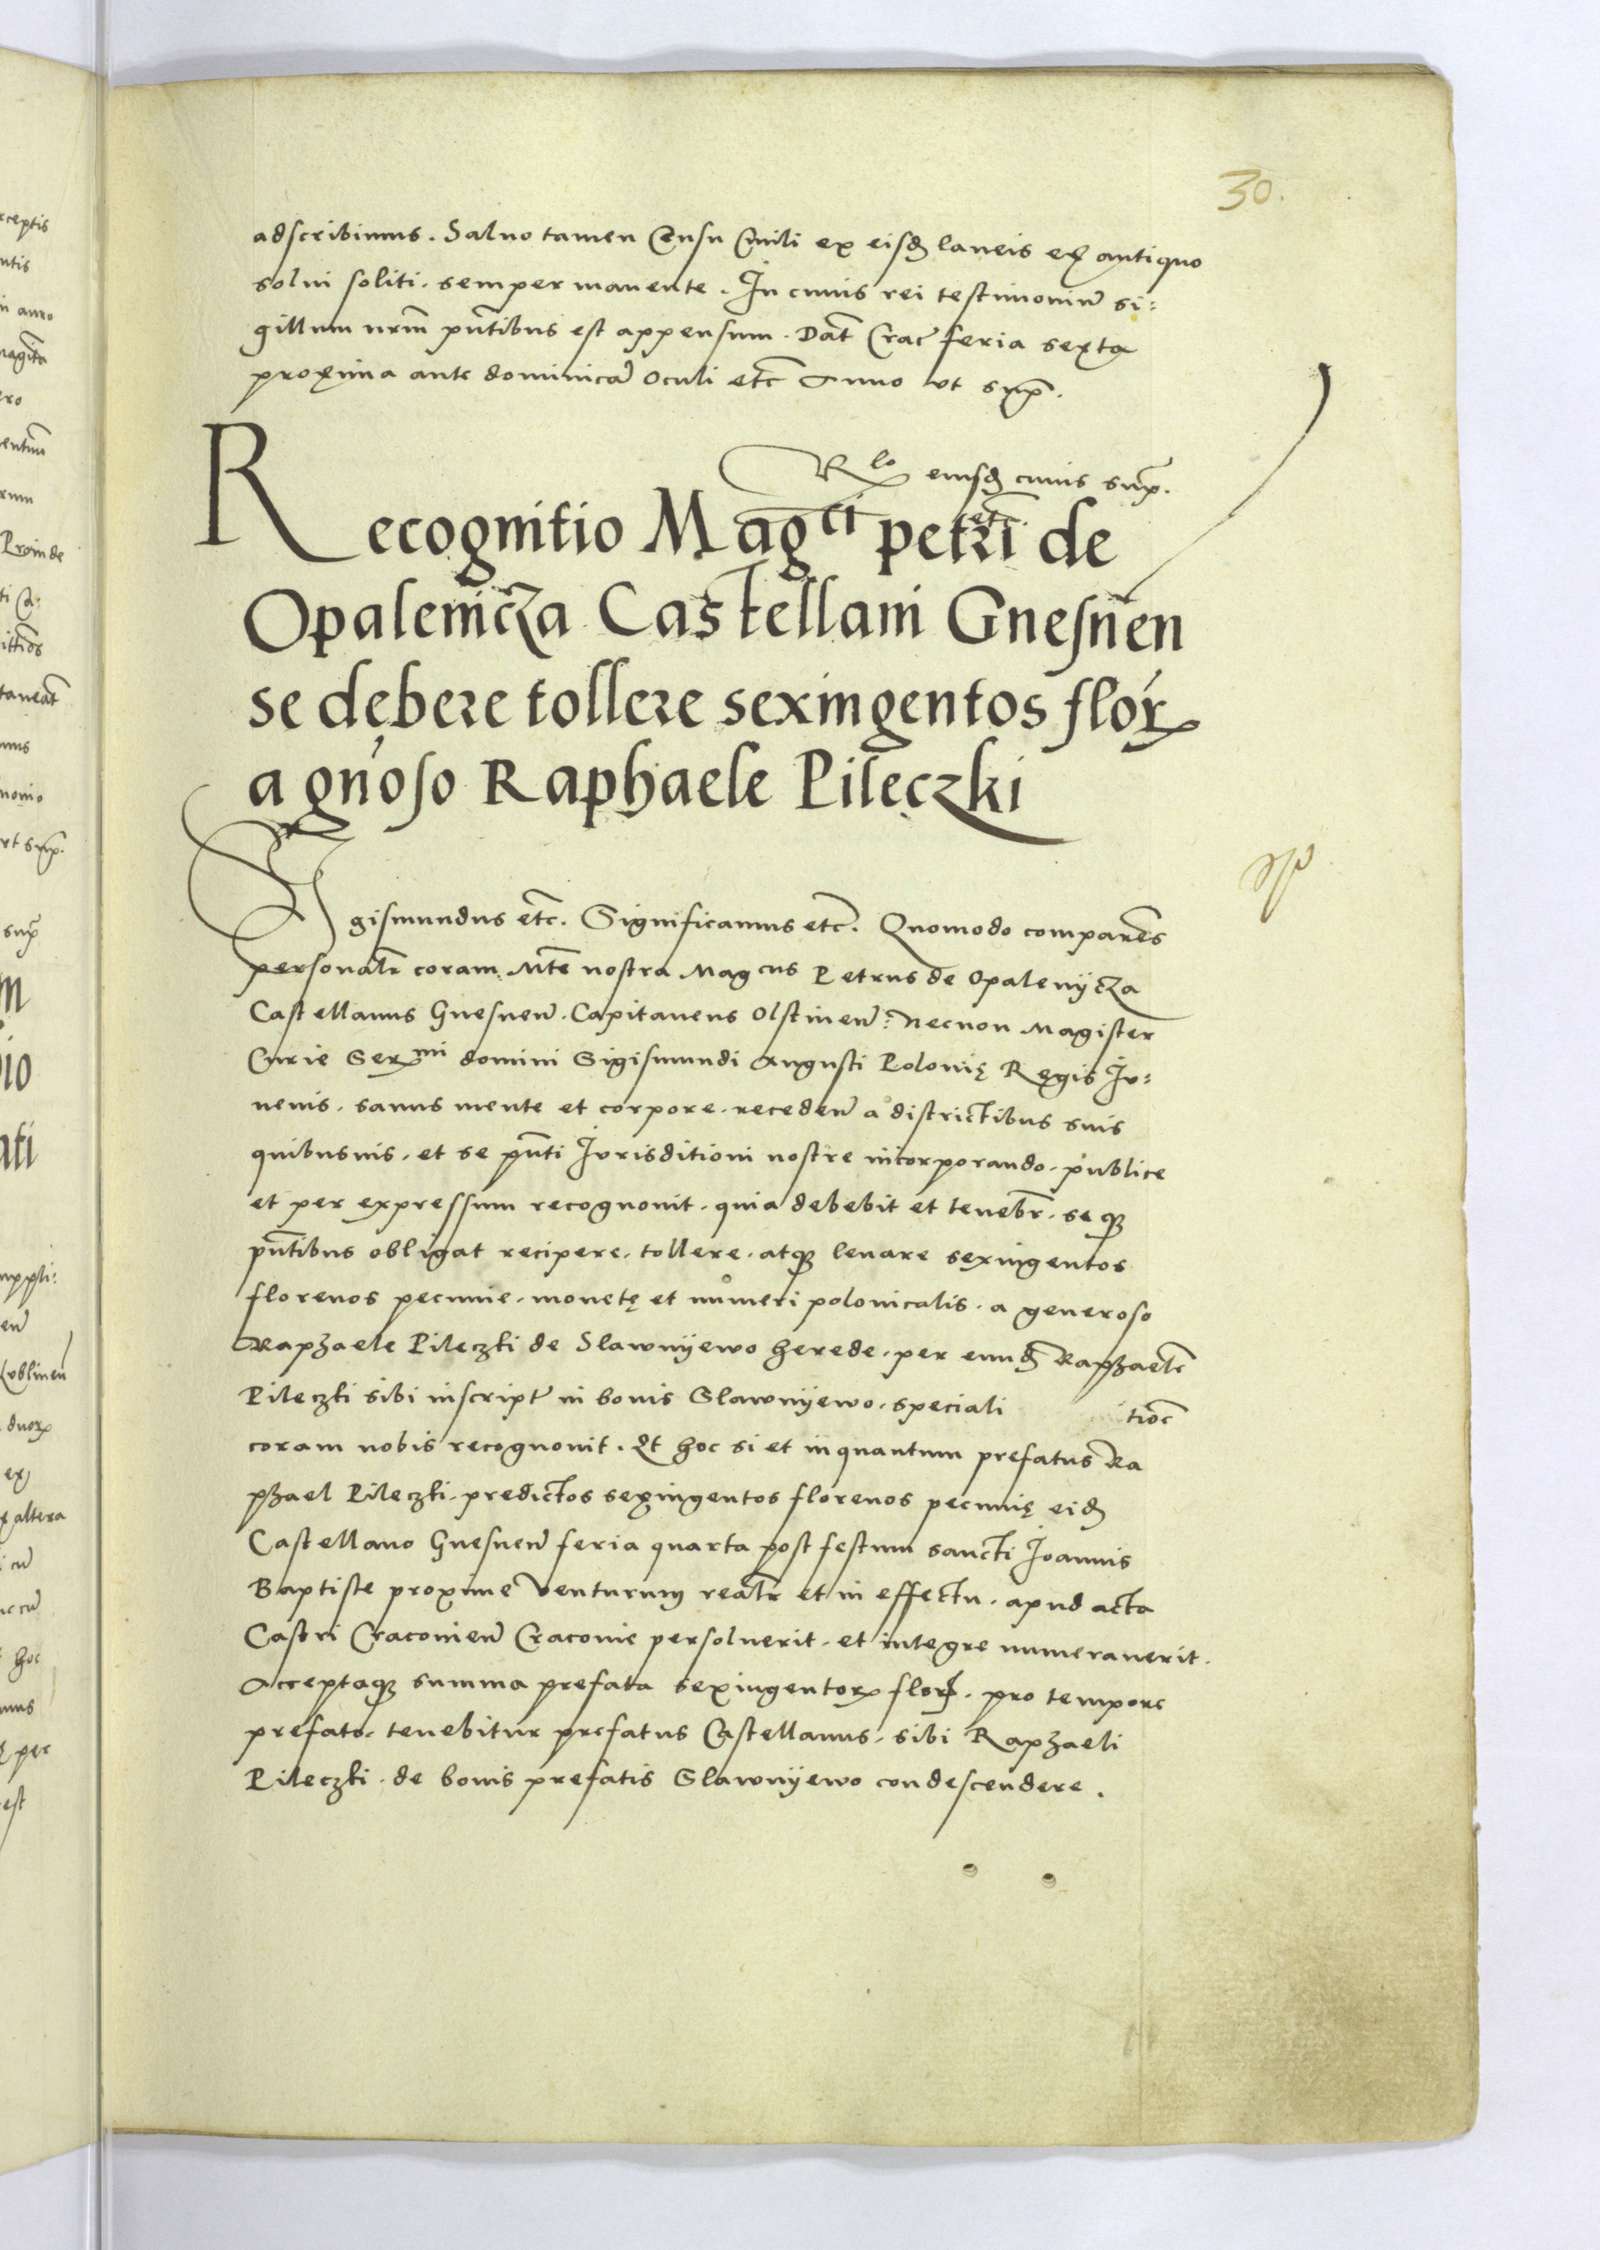 30.
adscribimus. Salvo tamen Censu Civili ex eisdẽ laneis ex antiquo
solvi soliti. semper manente. In cuius rei testimoniũ si:
gillum nrm̃ pñtibus est appensum. Dat̃ Crac̃ feria sexta
proxima ante dominicã Oculi etc̃ Anno vt sup̃.
Rlo eiusdẽ cuius sup̃.
etc̃.
Recognitio Magci petri de
Opalenicza Castellani Gnesneñ
se debere tollere sexingentos flor̃
a gñoso Raphaele Pileczki
Sigismundus etc̃. Significamus etc̃. Quomodo comparẽs
personalr̃ coram Mte nostra Magcus Petrus de Opalenycza
Castellanus Gnesneñ. Capitaneus Olstineñ: Necnon Magister
Curie Sermi domini Sigismundi Augusti Polonię Regis Iu:
venis. sanus mente et corpore. recedeñ a districtibus suis
quibusuis. et se pñti Iurisditioni nostre incorporando. publice
et per expressum recognouit. quia debebit et tenebr̃. seqꝫ
pñtibus obligat recipere. tollere. atqꝫ levare sexingentos
florenos pecunie. monetę et numeri polonicalis. a generoso
Raphaele Pileczki de Slawnyewo herede. per eundẽ Raphaelẽ
Pileczki sibi inscript̃ in bonis Slawnyewo. speciali tioẽ
coram nobis recognouit. Et hoc si et inquantum prefatus Ra
phael Pileczki. predictos sexingentos florenos pecunię eidẽ
Castellano Gnesneñ feria quarta post festum sancti Ioannis
Baptiste proxime venturum realr̃ et in effectu. apud acta
Castri Cracovieñ Cracovie persoluerit. et integre numerauerit.
Acceptaqꝫ summa prefata sexingentorꝝ flor̃. pro tempore
prefato. tenebitur prefatus Castellanus. sibi Raphaeli
Pileczki. de bonis prefatis Slawnyewo condescendere.